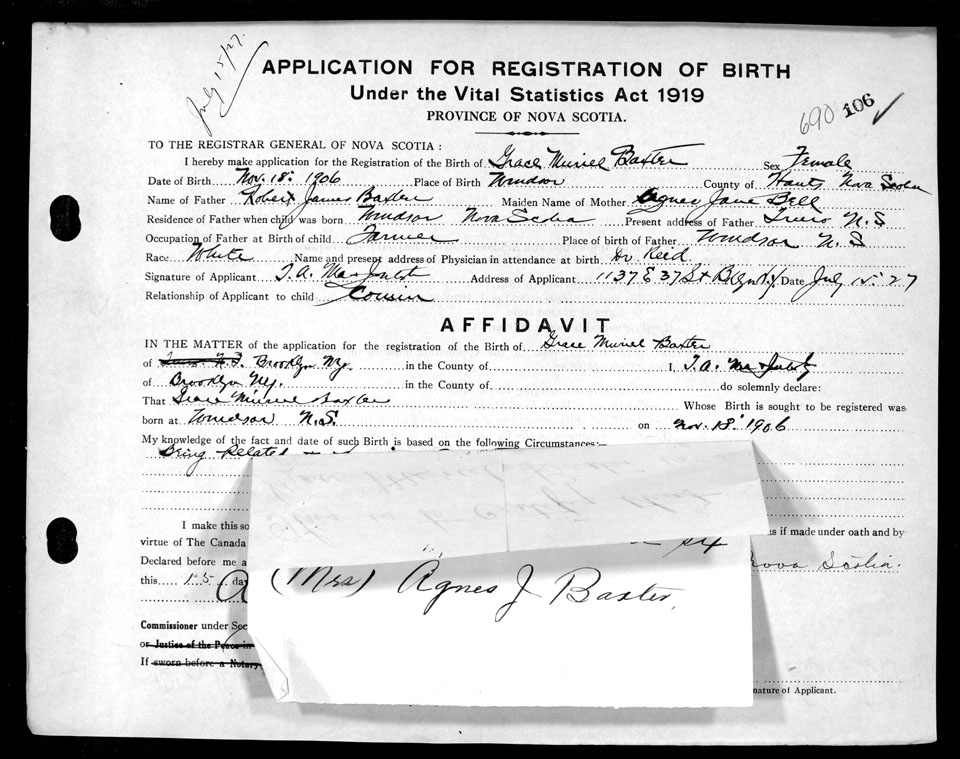 July 15/27.
APPLICATION FOR REGISTRATION OF BIRTH
Under the Vital Statistics Act 1919
PROVINCE OF NOVA SCOTIA.
690 106
TO THE REGISTRAR GENERAL OF NOVA SCOTIA:
I hereby make application for the Registration of the Birth of Grace Muriel Baxter Sex Female
Date of Birth Nov. 18. 1906 Place of Birth Windsor County of Hants Nova Scotia
Name of Father Robert James Baxter Maiden Name of Mother Agnes Jane Bell
Residence of Father when child was born Windsor Nova Scotia Present address of Father Truro N.S
Occupation of Father at Birth of child Farmer Place of birth of Father Windsor N.S
Race White Name and present address of Physician in attendance at birth Dr Reed
Signature of Applicant T.A. Address of Applicant 1137 E 37 St Bklyn N.Y Date July 15. 27
Relationship of Applicant to child Cousin
AFFIDAVIT
IN THE MATTER of the application for the registration of the Birth of Grace Muriel Baxter
of Brooklyn N.y. in the County of I, T.A.
of Brooklyn N.y. in the County of do solemnly declare:
That Grace Muriel Baxter Whose Birth is sought to be registered was
born at Windsor N.S. on Nov. 18. 1906
My knowledge of the fact and date of such Birth is based on the following Circumstances:—
Being Related
I make this so
as if made under oath and by
virtue of The Canada
Declared before me a
Nova Scotia.
this 15 da
(Mrs) Agnes J Baxter.
Commissioner under Sec
or Justice of the Peace in
If sworn before a Notary
nature of Applicant.